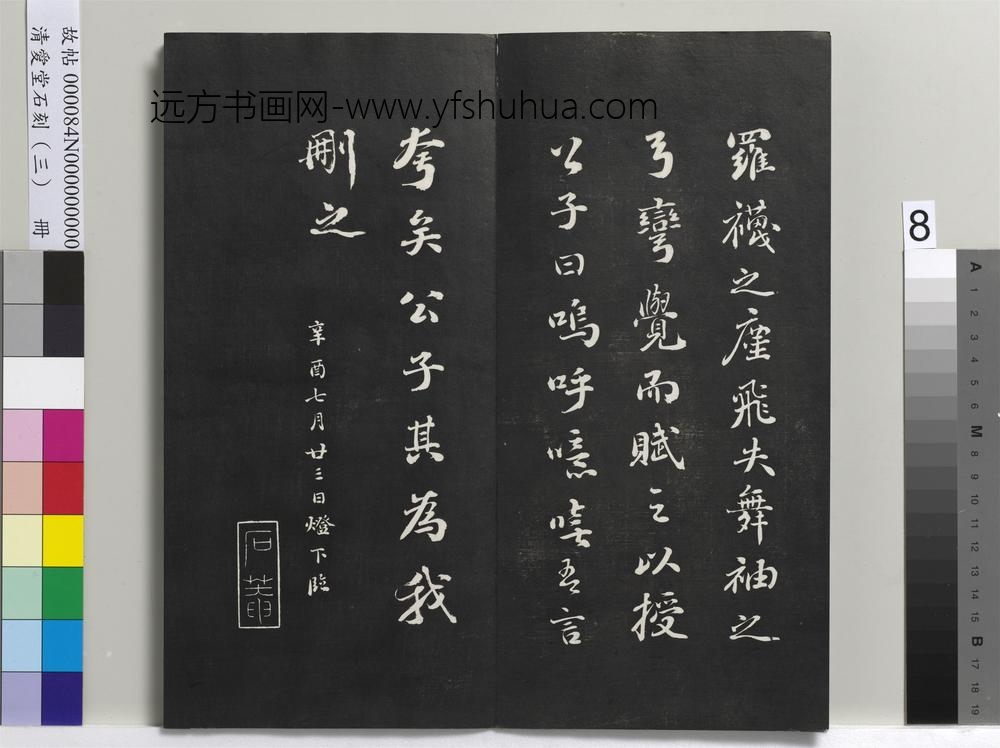 羅襪之塵飛失舞袖之
弓彎覺而賦之以授
公子曰嗚呼噫嘻吾言
夸矣公子其為我
刪之
辛酉七月廿三日燈下臨
石菴
远方书画网-www.yfshuhua.com
故帖 000084N000000000
清愛堂石刻(三) 冊
8
A
1
2
3
4
5
6
M
8
9
10
11
12
13
14
15
B
17
18
19